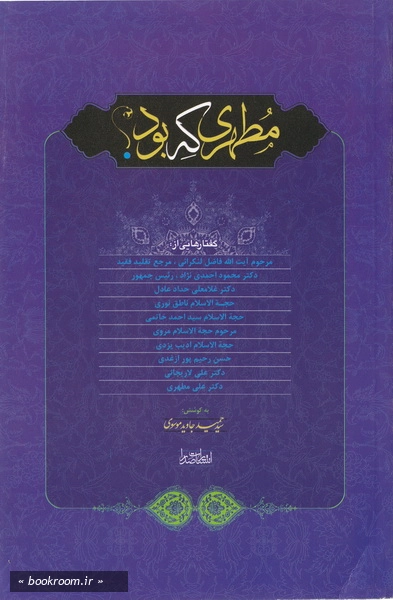 مطهری که بود؟
گفتارهایی از:
مرحوم آیت الله فاضل لنکرانی، مرجع تقلید فقید
دکتر محمود احمدی نژاد، رئیس جمهور
دکتر غلامعلی حداد عادل
حجة الاسلام ناطق نوری
حجة الاسلام سید احمد خاتمی
مرحوم حجة الاسلام مروی
حجة الاسلام ادیب یزدی
حسن رحیم پور ازغدی
دکتر علی لاریجانی
دکتر علی مطهری
به کوشش:
سید جاوید موسوی
انتشارات صدرا
« bookroom.ir »